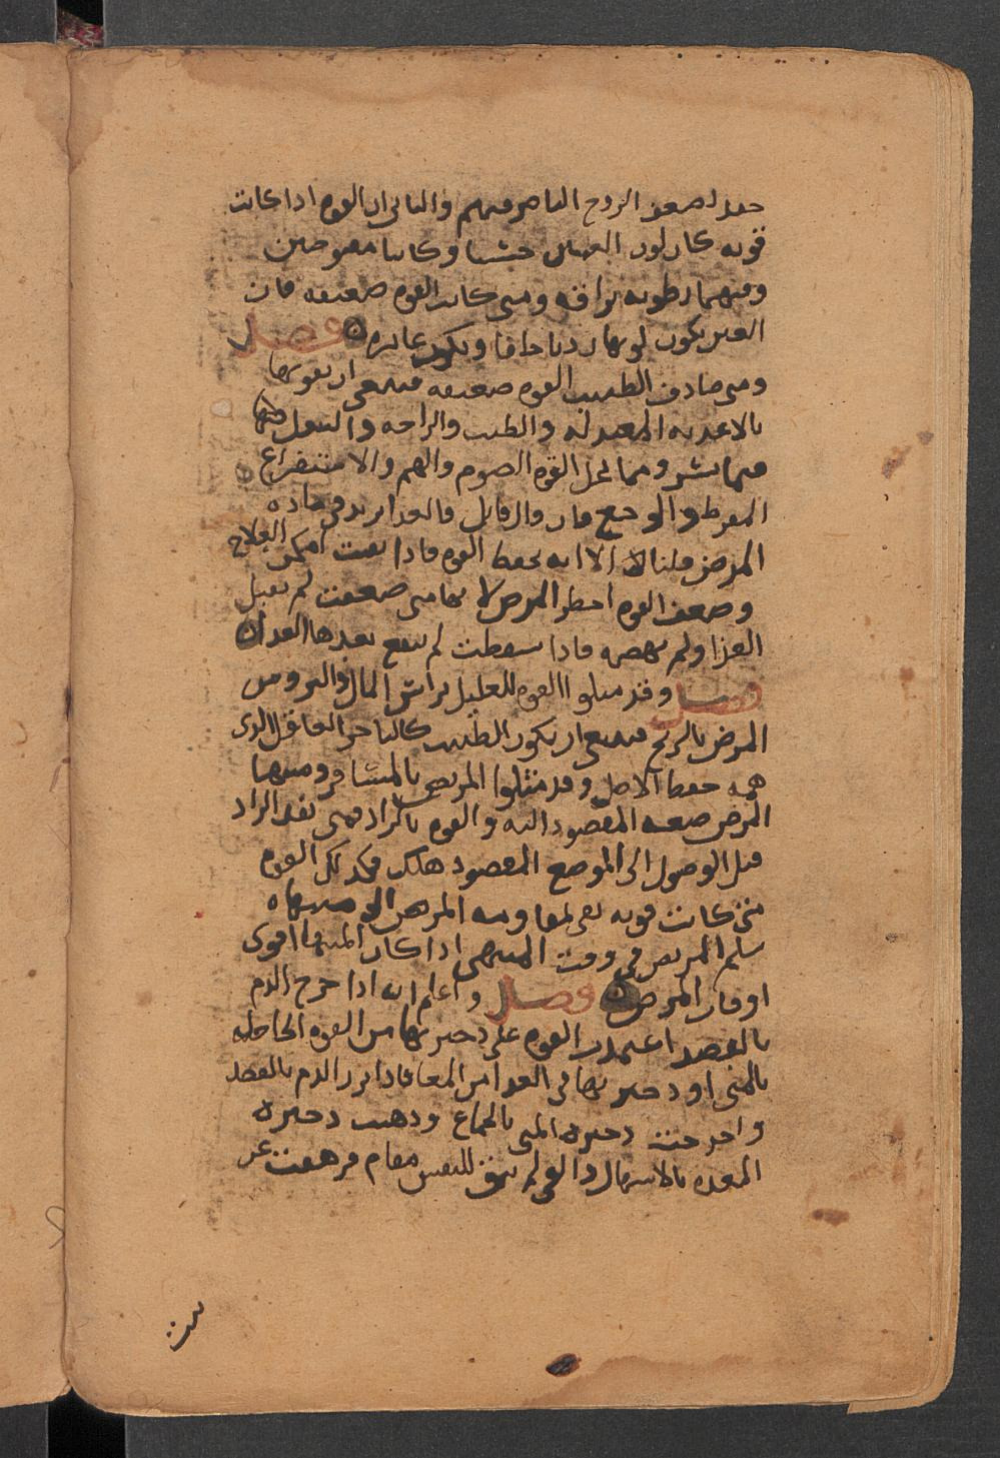 لضعف الروح الباصر فيهم والثاني ان القوه اذا كانت
قويه كان لون العينين حسنا وكانتا مفتوحتين
وفيهما رطوبه براقه ومتى كانت القوه ضعيفه فان
العين يكون لونها رديا جافا وتكون غايره فصل
ومتى صادف الطبيب القوه ضعيفه فينبغي ان يقويها
بالاغديه المعتدله والطيب والراحه والتنعل
فيما يسر ومما يحل القوه الصوم والهم والاستفراغ
المفرط والوجع فان قال قايل فالغدا يزيد في ماده
المرض قلنا الا انه يحفظ القوه فاذا بقيت امكن العلاج
وضعف القوه اخطر المرض لانها متى ضعفت لم تقبل
الغذا ولم تهضمه فاذا سقطت لم ينفع بعدها الغدا
فصل وقد مثلوا القوه للعليل براس المال والبرو من
المرض بالربح فينبغي ان يكون الطبيب كالتاجر العاقل الذي
همه حفظ الاصل وقد مثلوا المريض بالمسافر ومنتها
المرض ضيعه المقصود اليه والقوه بالزاد فمتى نفد الزاد
قبل الوصول الى الموضع المقصود هلك فكذلك القوه
متى كانت قويه تفي لمقاومه المرض الى منتهاه
سلم المريض في وقت المنتهى اذا كان المنتها اقوى
اوقات المرض فصل واعلم انه اذا خرج الدم
بالفصد اعتمدت القوه على دخيرتها من القوه الحاصله
بالمني او دخيرتها في الغدا من المعا فاذا برز الدم بالفصد
واخرجت دخيره المني بالجماع ودهبت دخيره
المعده بالاسهال والقي لم يبق للنفس مقام فرهقت عن